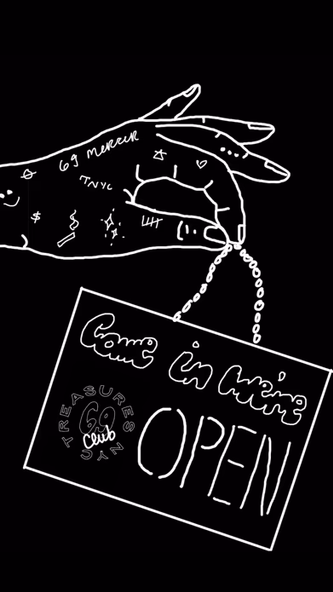 69 MERCER
TNYC
$
Come in we're
OPEN
TREASURES NYC
69
Club